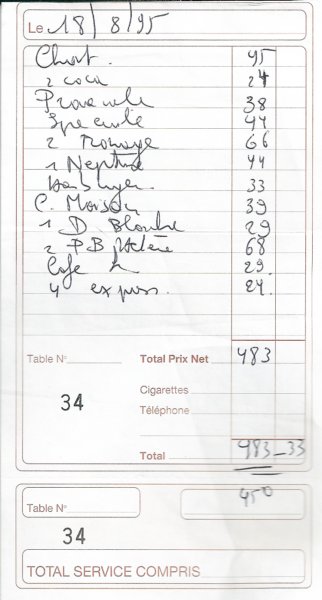 Le 18/8/95
45
2 coca 24
38
Speciale 44
2 Fromage 66
1 Neptune 44
Hamburger 33
C. Maison 39
1 D. Blanche 29
2 P B Hélène 68
Cafe L 29
4 express. 24
Table N° Total Prix Net 483
Cigarettes
34
Téléphone
Total 483_33
Table N° 450
34
TOTAL SERVICE COMPRIS